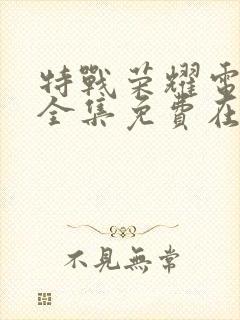 特戰荣耀電
全集免費在
不見無常